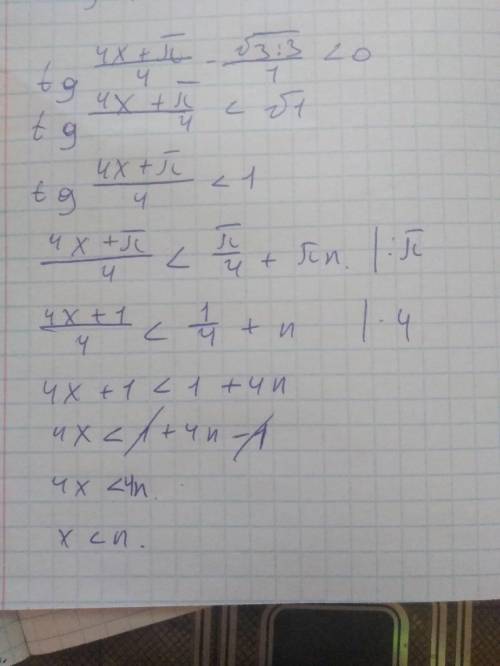 tg (4x + π)/4 - √(3:3)/1 < 0
tg (4x + π)/4 < √1
tg (4x + π)/4 < 1
(4x + π)/4 < π/4 + πn. | : π
(4x + 1)/4 < 1/4 + n | · 4
4x + 1 < 1 + 4n
4x < 1 + 4n - 1
4x < 4n.
x < n.